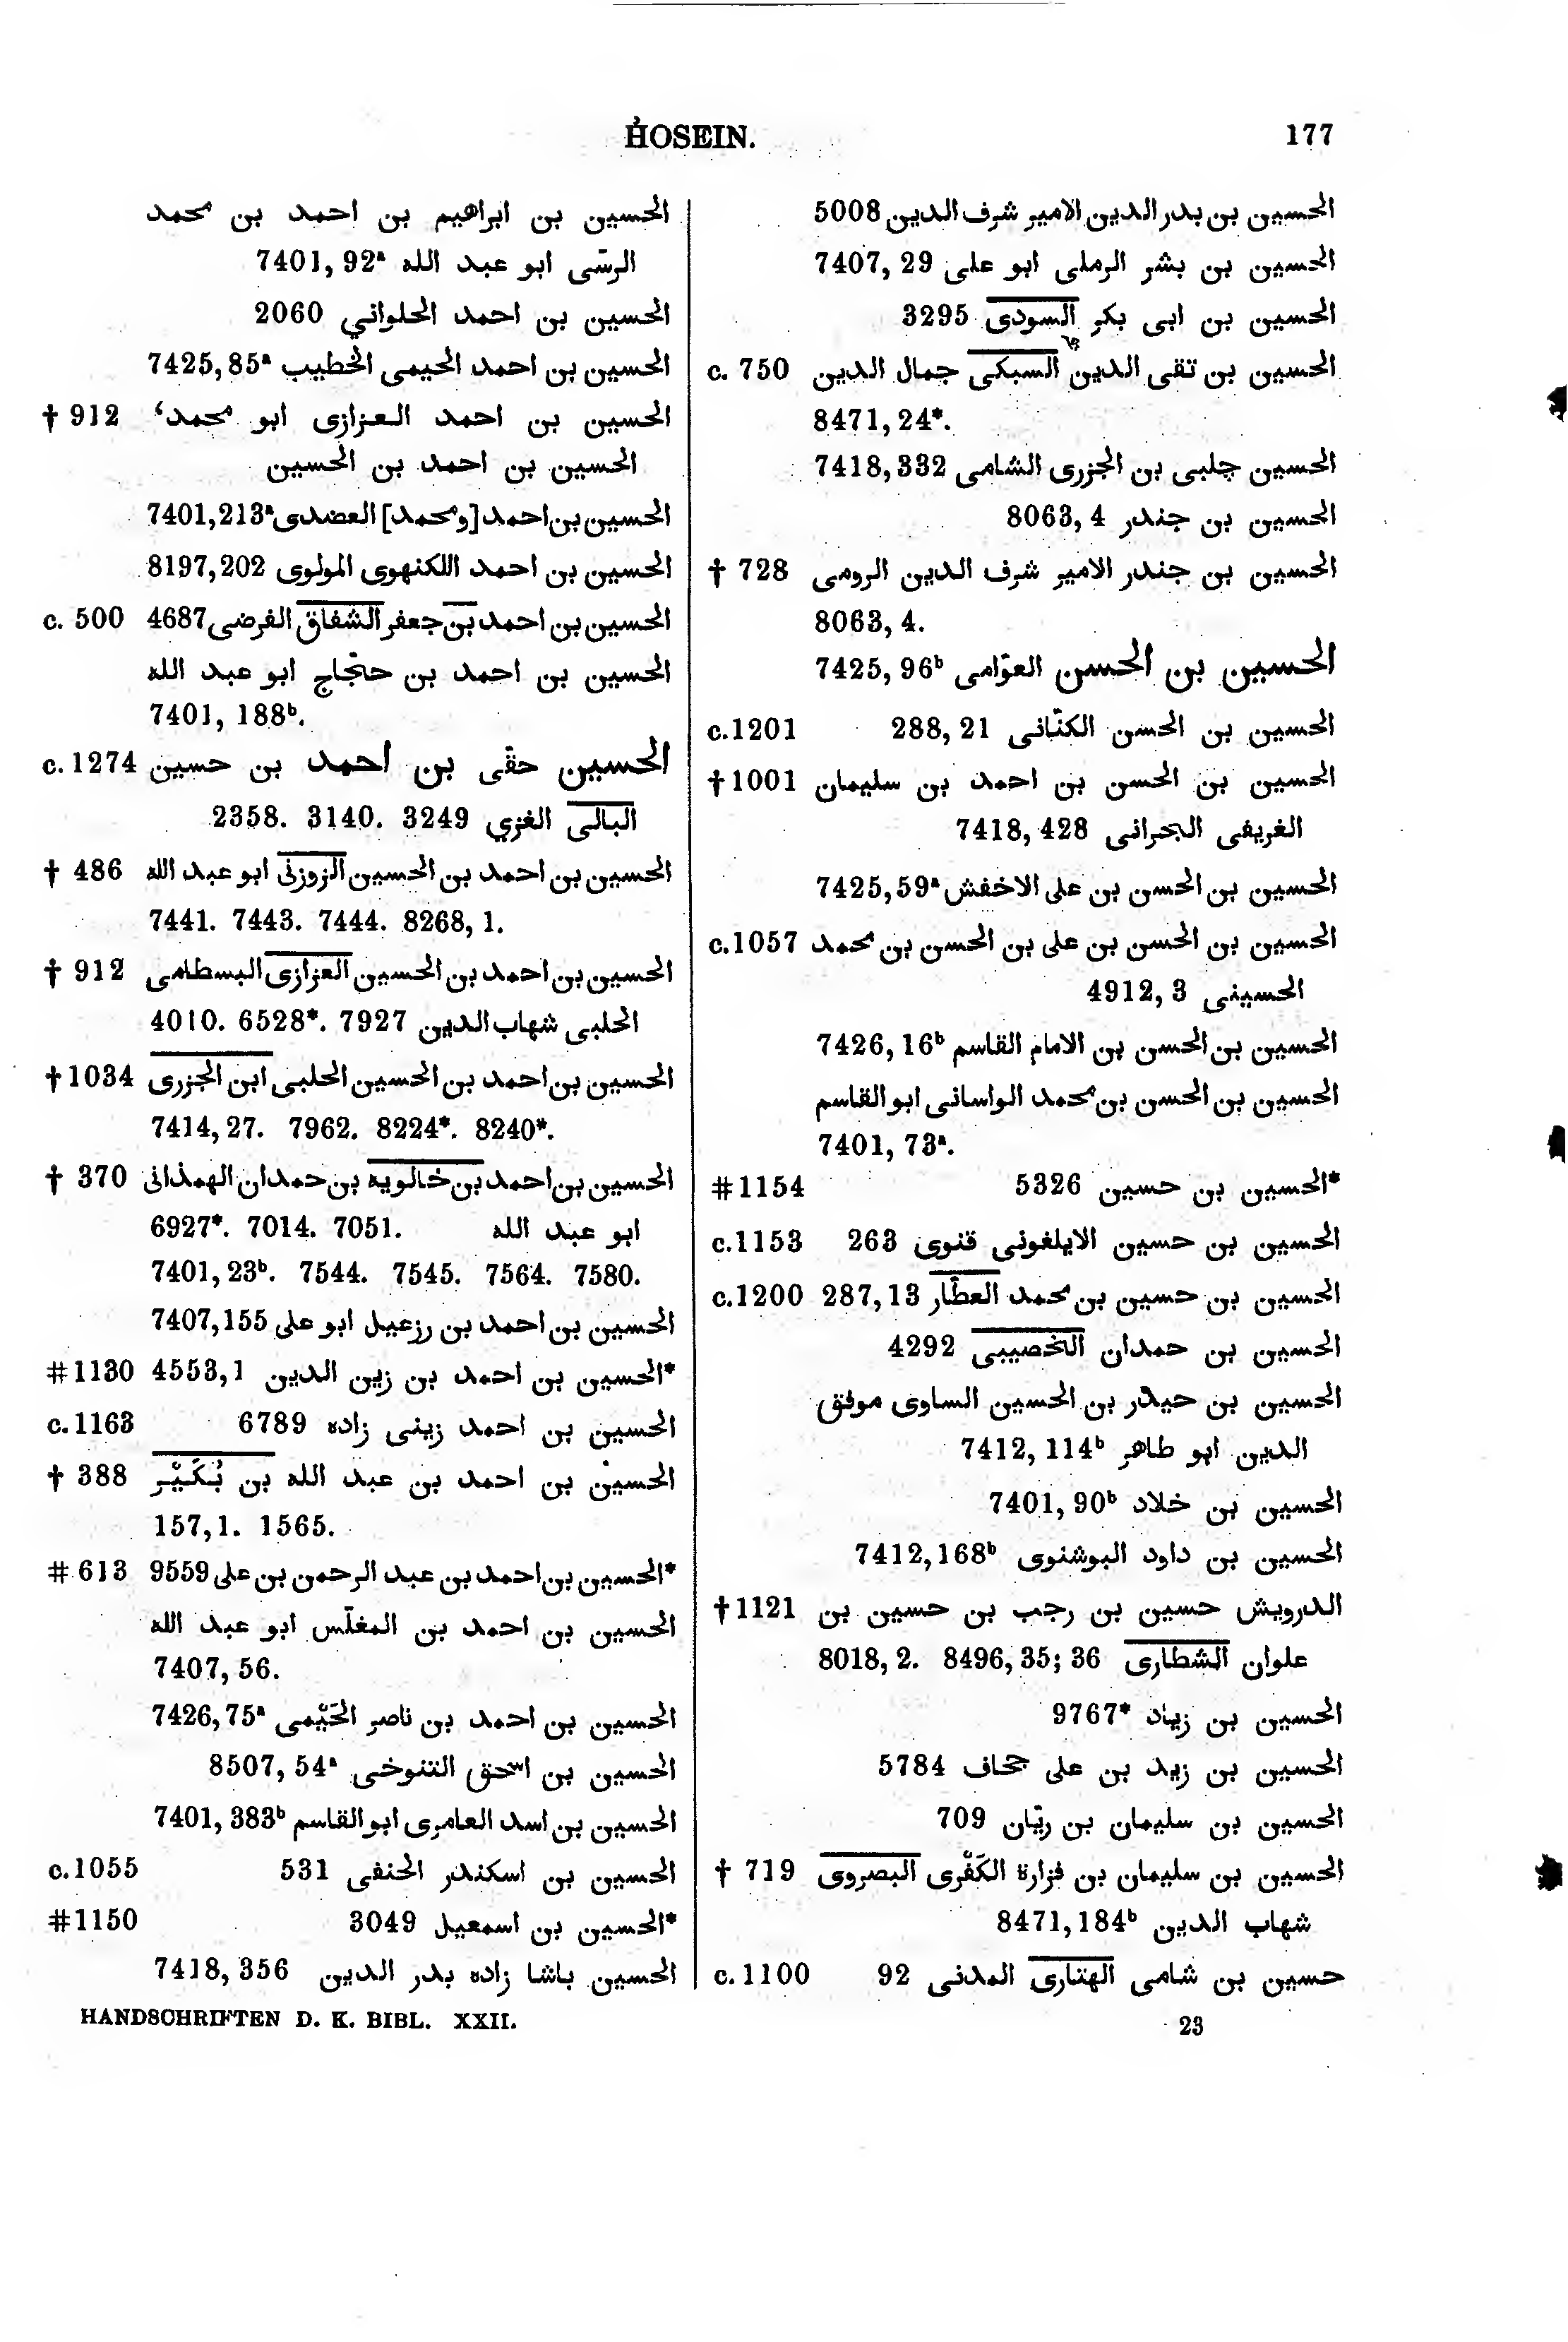 ḢOSEIN. 177
الحسين بن ابراهيم بن احمد بن محمد
الرسّى ابو عبد الله 7401, 92ᵃ
الحسين بن احمد الحلواني 2060
الحسين بن احمد الحيمى الخطيب 7425, 85ᵃ
الحسين بن احمد العزازى ابو محمد، † 912
الحسين بن احمد بن الحسين
الحسين بن احمد [ومحمد] العضدى 7401, 213ᵃ
الحسين بن احمد اللكنهوى المولوى 8197, 202
الحسين بن احمد بن جعفر الشفاق الفرضى 4687 c. 500
الحسين بن احمد بن حجّاج ابو عبد الله
7401, 188ᵇ.
الحسين حقّى بن احمد بن حسين c. 1274
البالى الغزي 2358. 3140. 3249
الحسين بن احمد بن الحسين الزوزنى ابو عبد الله † 486
7441. 7443. 7444. 8268, 1.
الحسين بن احمد بن الحسين العزازى البسطامى † 912
الحلبى شهاب الدين 4010. 6528*. 7927
الحسين بن احمد بن الحسين الحلبى ابن الجزرى † 1034
7414, 27. 7962. 8224*. 8240*.
الحسين بن احمد بن خالويه بن حمدان الهمذانى † 370
ابو عبد الله 6927*. 7014. 7051.
7401, 23ᵇ. 7544. 7545. 7564. 7580.
الحسين بن احمد بن رزعيل ابو على 7407, 155
*الحسين بن احمد بن زين الدين 4553, 1 # 1130
الحسين بن احمد زينى زاده 6789 c. 1163
الحسين بن احمد بن عبد الله بن بُكَيْر † 388
157, 1. 1565.
*الحسين بن احمد بن عبد الرحمن بن على 9559 # 613
الحسين بن احمد بن المغلّس ابو عبد الله
7407, 56.
الحسين بن احمد بن ناصر الحَيْمى 7426, 75ᵃ
الحسين بن اسحق التنوخى 8507, 54ᵃ
الحسين بن اسد العامرى ابو القاسم 7401, 383ᵇ
الحسين بن اسكندر الحنفى 531 c. 1055
*الحسين بن اسمعيل 3049 # 1150
الحسين باشا زاده بدر الدين 7418, 356
الحسين بن بدر الدين الامير شرف الدين 5008
الحسين بن بشر الرملى ابو على 7407, 29
الحسين بن ابى بكر السودى 3295
الحسين بن تقى الدين السبكى جمال الدين c. 750
8471, 24*.
الحسين چلبى بن الجزرى الشامى 7418, 332
الحسين بن جندر 8063, 4
الحسين بن جندر الامير شرف الدين الرومى † 728
8063, 4.
الحسين بن الحسن العوّامى 7425, 96ᵇ
الحسين بن الحسن الكتّانى 288, 21 c. 1201
الحسين بن الحسن بن احمد بن سليمان † 1001
الغريفى البحرانى 7418, 428
الحسين بن الحسن بن على الاخفش 7425, 59ᵃ
الحسين بن الحسن بن على بن الحسن بن محمد c. 1057
الحسينى 4912, 3
الحسين بن الحسن بن الامام القاسم 7426, 16ᵇ
الحسين بن الحسن بن محمد الواسانى ابو القاسم
7401, 73ᵃ.
*الحسين بن حسين 5326 # 1154
الحسين بن حسين الايلغونى قنوى 263 c. 1153
الحسين بن حسين بن محمد العطّار 287, 13 c. 1200
الحسين بن حمدان الخصيبى 4292
الحسين بن حيدر بن الحسين الساوى موفق
الدين ابو طاهر 7412, 114ᵇ
الحسين بن خلاد 7401, 90ᵇ
الحسين بن داود البوشنوى 7412, 168ᵇ
الدرويش حسين بن رجب بن حسين بن † 1121
علوان الشطارى 8018, 2. 8496, 35; 36
الحسين بن زياد 9767*
الحسين بن زيد بن على جحاف 5784
الحسين بن سليمان بن ريّان 709
الحسين بن سليمان بن فزارة الكَفْرى البصروى † 719
شهاب الدين 8471, 184ᵇ
حسين بن شامى الهتارى المدنى 92 c. 1100
HANDSCHRIFTEN D. K. BIBL. XXII. 23